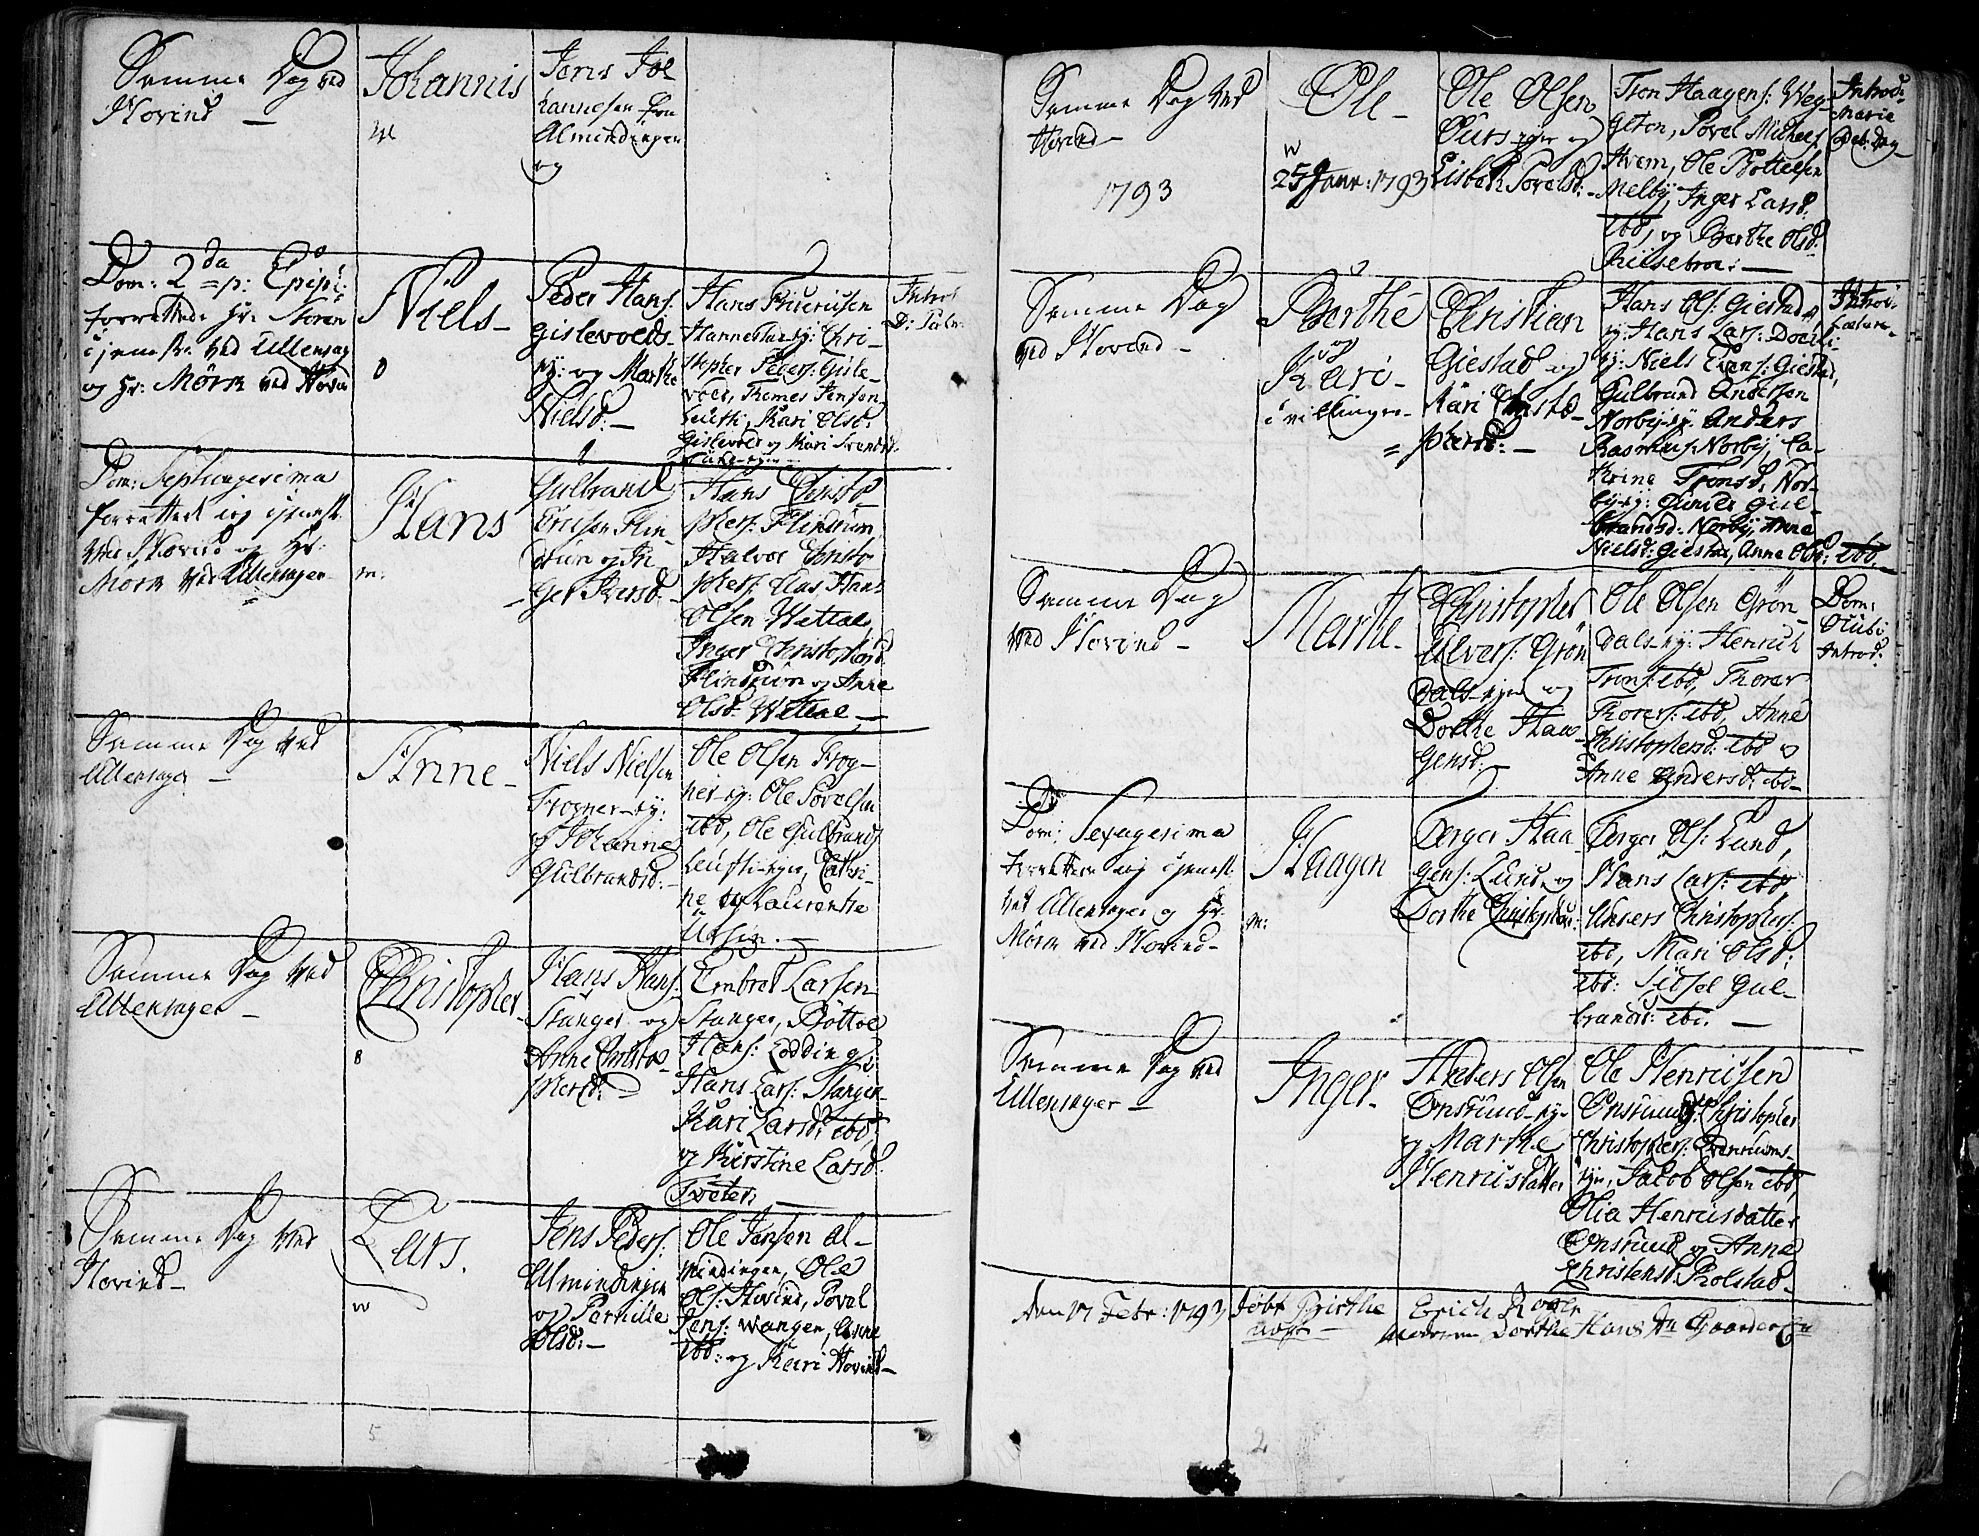 Samme Dag ved
Hovind —
Johannis
Jens Jo
hannesen fra
Almindingen
og
Dom: 2da p: Epiph:
forrettede Hr:
tjenesten ved Ullensager
og Hr: Mørch ved Hovin
Niels —
Peder Hans:
Gislevolds
ej: og Marthe
Nielsd: —
Hans
Hannestad ej: Chri-
stopher Peders: Gisle-
vold, Thomes Jensen
Kari Olsd:
Gislevold og Kari
Introd
Dom: Septuagesima
forrettede jeg tjenest:
ved Hovind og Hr:
Mørch ved Ullensager —
Hans
m:
Gulbrand
Ericsen Flin-
drum og In
ger Persd: —
Hans Christo
phers: Flindrum
Halvor Christo
phers: Aas, Hans
Olsen Wettal,
Inger Christophersd:
Flindrum og Anne
Olsd: Wettal —
Samme Dag ved
Ullensager —
Anne —
Niels Nielsen
Frogner-ej:
og Johanne
Gulbrandsd: —
Ole Olsen Frog-
ner-ej: Ole Povelsen
ibd, Ole Gulbrands
ejer, Cathri-
ne og Laurentze
Samme Dag ved
Ullensager —
Christopher —
8
Hans Hans:
Stanger og
Anne Christo-
phersd: —
Embret Larsen
Stanger, Bottol
Hans: Lodding
Hans Lars: Stanger
Kari Larsd: ibd,
og Kirstine Larsd:
Tveter:
Samme Dag ved
Hovind —
Lars.
w
Jens Peders:
Almindingen
og Pernille
Olsd: —
Ole Jensen Al-
mindingen, Ole
Ols: Hovind, Povel
Jens: Wangen, Anne
ibd: og Kari Hovind —
5
Samme Dag ved
Hovind —
1793
Ole —
w
25 Janr: 1793
Ole Olsen
ejer og
Lisbeth Povelsd: —
Tron Haagens: Weg-
Povel Michels
Hvem, Ole Bottelsen
Melby, Inger Larsd:
ibd, og Berthe Olsd:
Riisebroe: —
Introd:
Marie
Dag —
Samme Dag
ved Hovind —
Berthe
og
Kari —
tvillinger —
Christian
Giestad og
Kari Christo-
phersd: —
Hans Ols: Giestad
ej: Hans Lars: Doeli
ej: Niels Evens: Giestad,
Gulbrand Andersen
Norby-ej: Anders
Rasmus: Norby, Ca-
thrine Tronsd: Nor-
by-ej: Gunild Gul-
brandsd: Norby, Anne
Nielsd: Giestad, Anne Olsd: ibd
Introd:
Samme Dag
ved Hovind —
Marthe —
Christopher
Alvers: Grøn
dals-ejer og
Dorthe Haa-
gensd: —
Ole Olsen Grøn
dals-ej: Henrich
Trons: ibd, Thorer
Thorers: ibd, Anne
Christophersd: ibd og
Anne Andersd: ibd —
Dom:
Introd:
Dom: Sexagesima
forrettede jeg tjenest:
ved Ullensager og Hr:
Mørch ved Hovind —
Haagen
m:
Berger Haa
gens: Lund og
Dorthe Christophersd:
Berger Ols: Lund,
Hans Lars: ibd
Anders Christophers:
ibd, Mari Olsd:
ibd: Sidsel Gul-
brandsd: ibd. —
Samme Dag ved
Ullensager —
Inger —
Anders Olsen
Onsrund-ej:
og Marthe
Henrichsdatter
Ole Henrichsen
Onsrund, Christopher
Christophers:
ejer, Jacob Olsen ibd,
Olia Henrichsdatter
Onsrund og Anne
Christensd: Rolstad —
den 17 Febr: 1793 døbt Birthe
Erich
Moderen Dorthe Hans Dtr
2